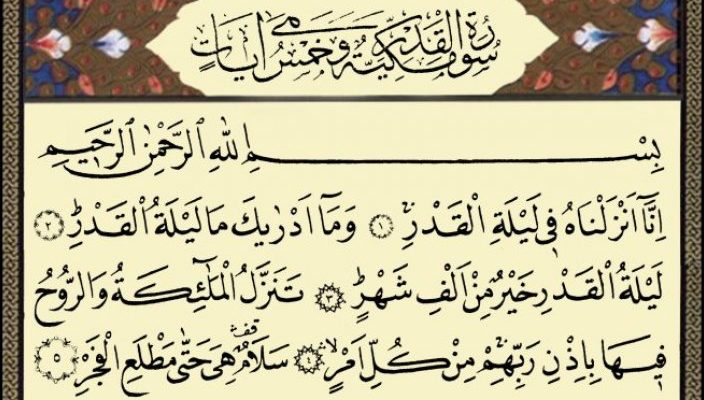 سُورَةُ الْقَدْرِ مَكِّيَّةٌ وَهِىَ خَمْسُ اٰيَاتٍ
بِسْمِ اللّٰهِ الرَّحْمٰنِ الرَّحِيمِ
اِنَّٓا اَنْزَلْنَاهُ ف۪ى لَيْلَةِ الْقَدْرِۚ ﴿١﴾ وَمَٓا اَدْرٰيكَ مَا لَيْلَةُ الْقَدْرِۜ ﴿٢﴾
لَيْلَةُ الْقَدْرِ خَيْرٌ مِنْ اَلْفِ شَهْرٍۜ ﴿٣﴾ تَنَزَّلُ الْمَلٰٓئِكَةُ وَالرُّوحُ
ف۪يهَا بِاِذْنِ رَبِّهِمْ مِنْ كُلِّ اَمْرٍۙ ﴿٤﴾ سَلَامٌ۠ هِىَ حَتّٰى مَطْلَعِ الْفَجْرِ ﴿٥﴾